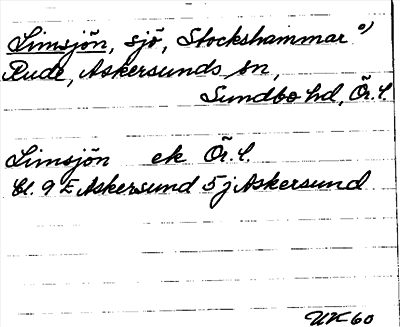 Limsjön, sjö, Stockshammar o)
Rude, Askersunds sn,
Sundbo hd, Ör. l.
Limsjön ek Ör. l.
Bl. 9 E Askersund 5 j Askersund
UK 60